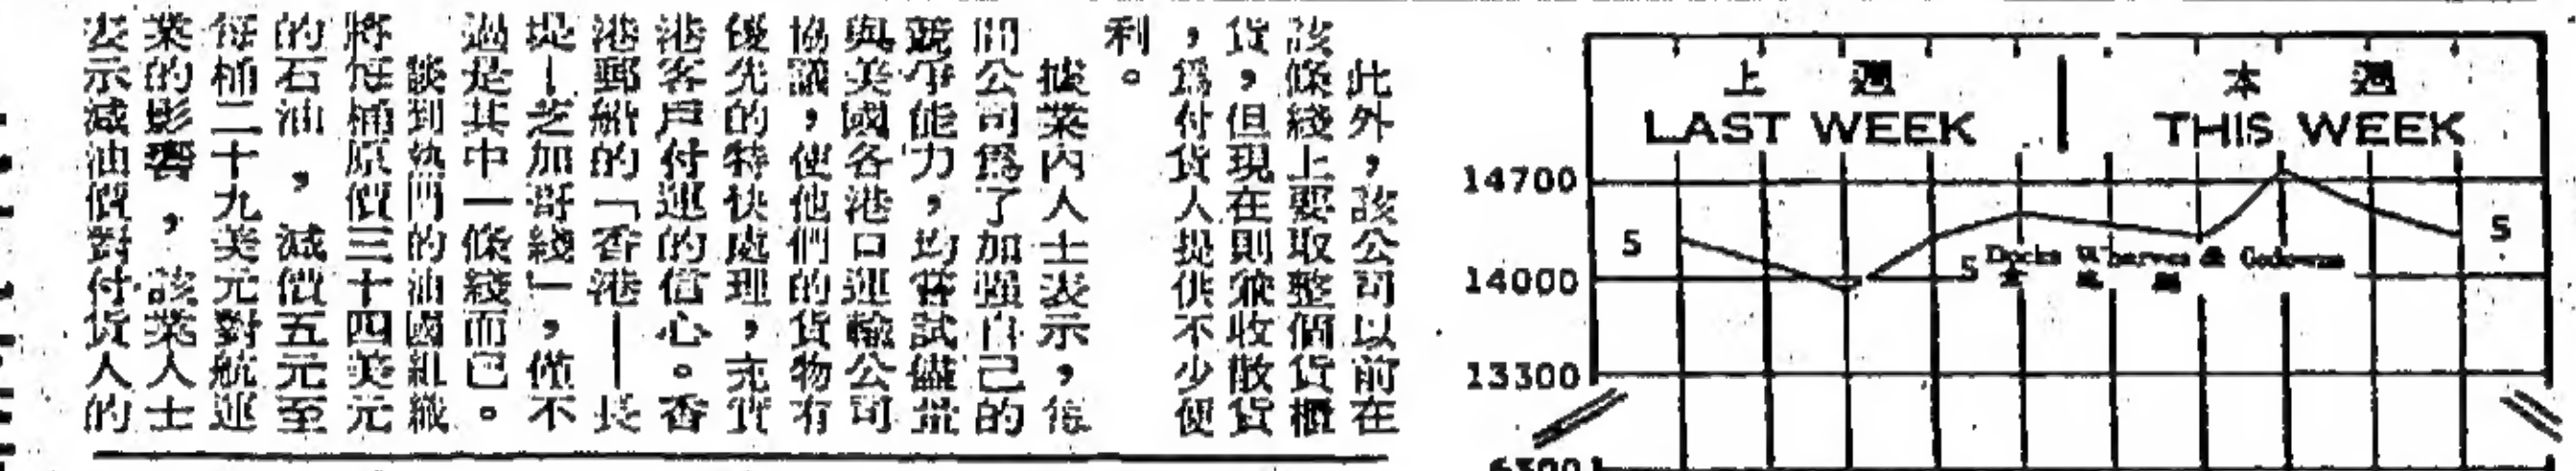 此外，該公司以前在
該條綫上要取整個貨櫃
貨，但現在則兼收散貨
，爲付貨人提供不少便
利。
據業內人士表示，每
間公司爲了加強自己的
競爭能力，均嘗試儘量
與美國各港口運輸公司
協議，使他們的貨物有
優先的特快處理，充實
港客戶付運的信心。香
港郵船的「香港——長
堤—芝加哥綫」，僅不
過是其中一條綫而已。
談到熱門的油國組織
將每桶原價三十四美元
的石油，減價五元至
每桶二十九美元對航運
業的影響，該業人士
表示減油價對付貨人的
上週 本週
LAST WEEK THIS WEEK
14700
5 5
5 Docks Wharves & Godowns
14000
13300
6300